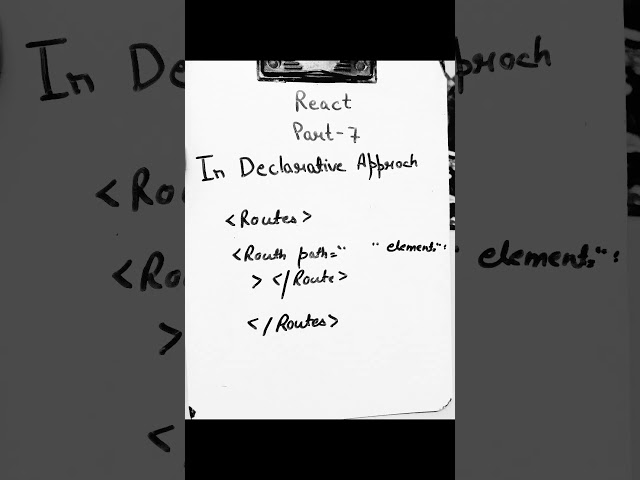 React
Part-7
In Declarative Approch
<Routes>
<Routh path=" " element="":
> </Route>
</Routes>